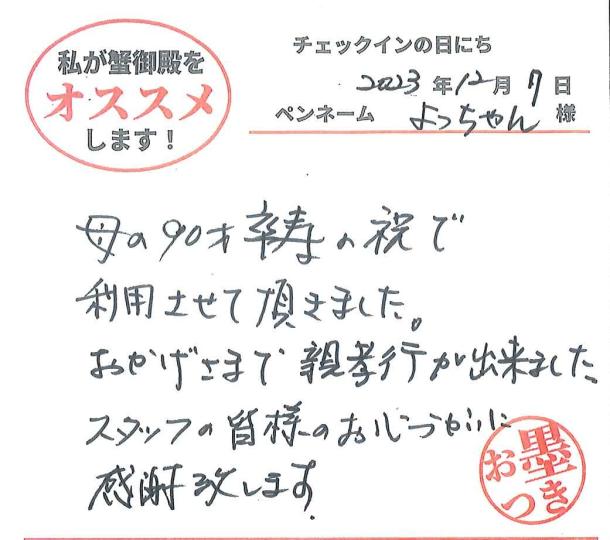 私が蟹御殿を
オススメ
します！
チェックインの日にち
2023年12月7日
ペンネーム よっちゃん 様
母の90才卒寿の祝で
利用させて頂きました。
おかげさまで親孝行が出来ました
スタッフの皆様のお心づかいに
感謝致します.
墨
おつき